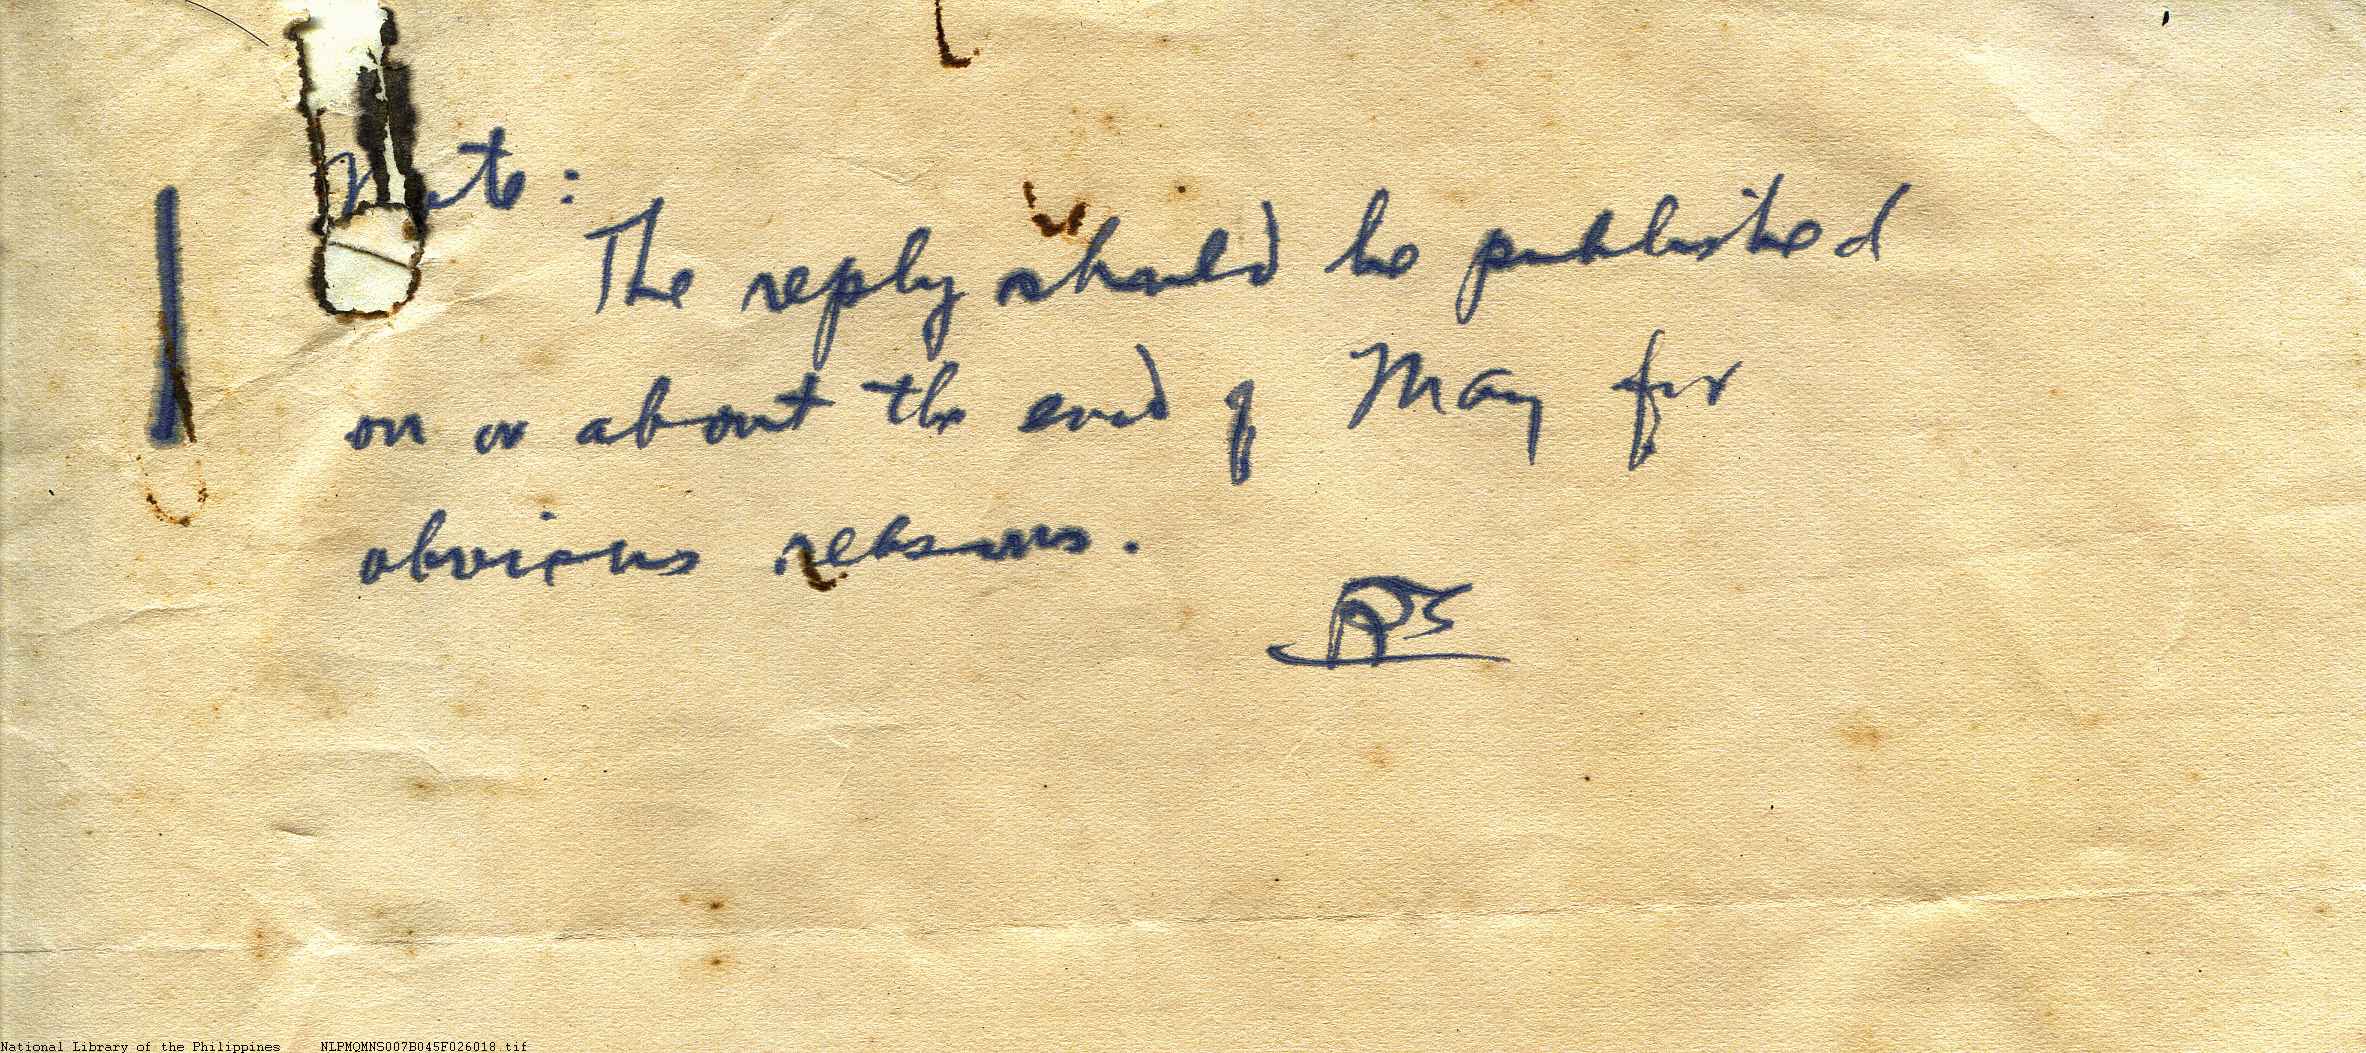 Note:
The reply should be published
on or about the end of May for
obvious reasons.
National Library of the Philippines NLPMQMNS007B045F026018.tif